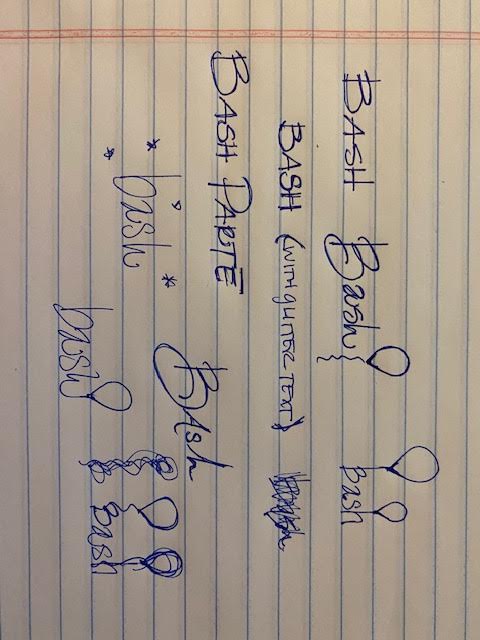 BASH Bash Bash
BASH (WITH GLITTER TEXT)
BASH PARTE
Bash
* bash *
bash Bash